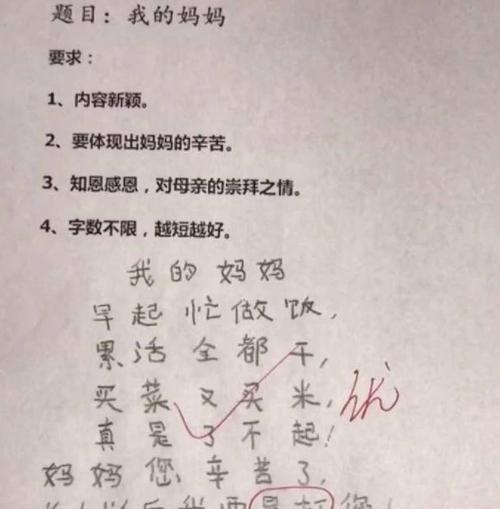 题目：我的妈妈
要求：
1、内容新颖。
2、要体现出妈妈的辛苦。
3、知恩感恩，对母亲的崇拜之情。
4、字数不限，越短越好。
我的妈妈
早起忙做饭，
累活全都干，
买菜又买米，优
真是了不起！
妈妈您辛苦了，
以后我